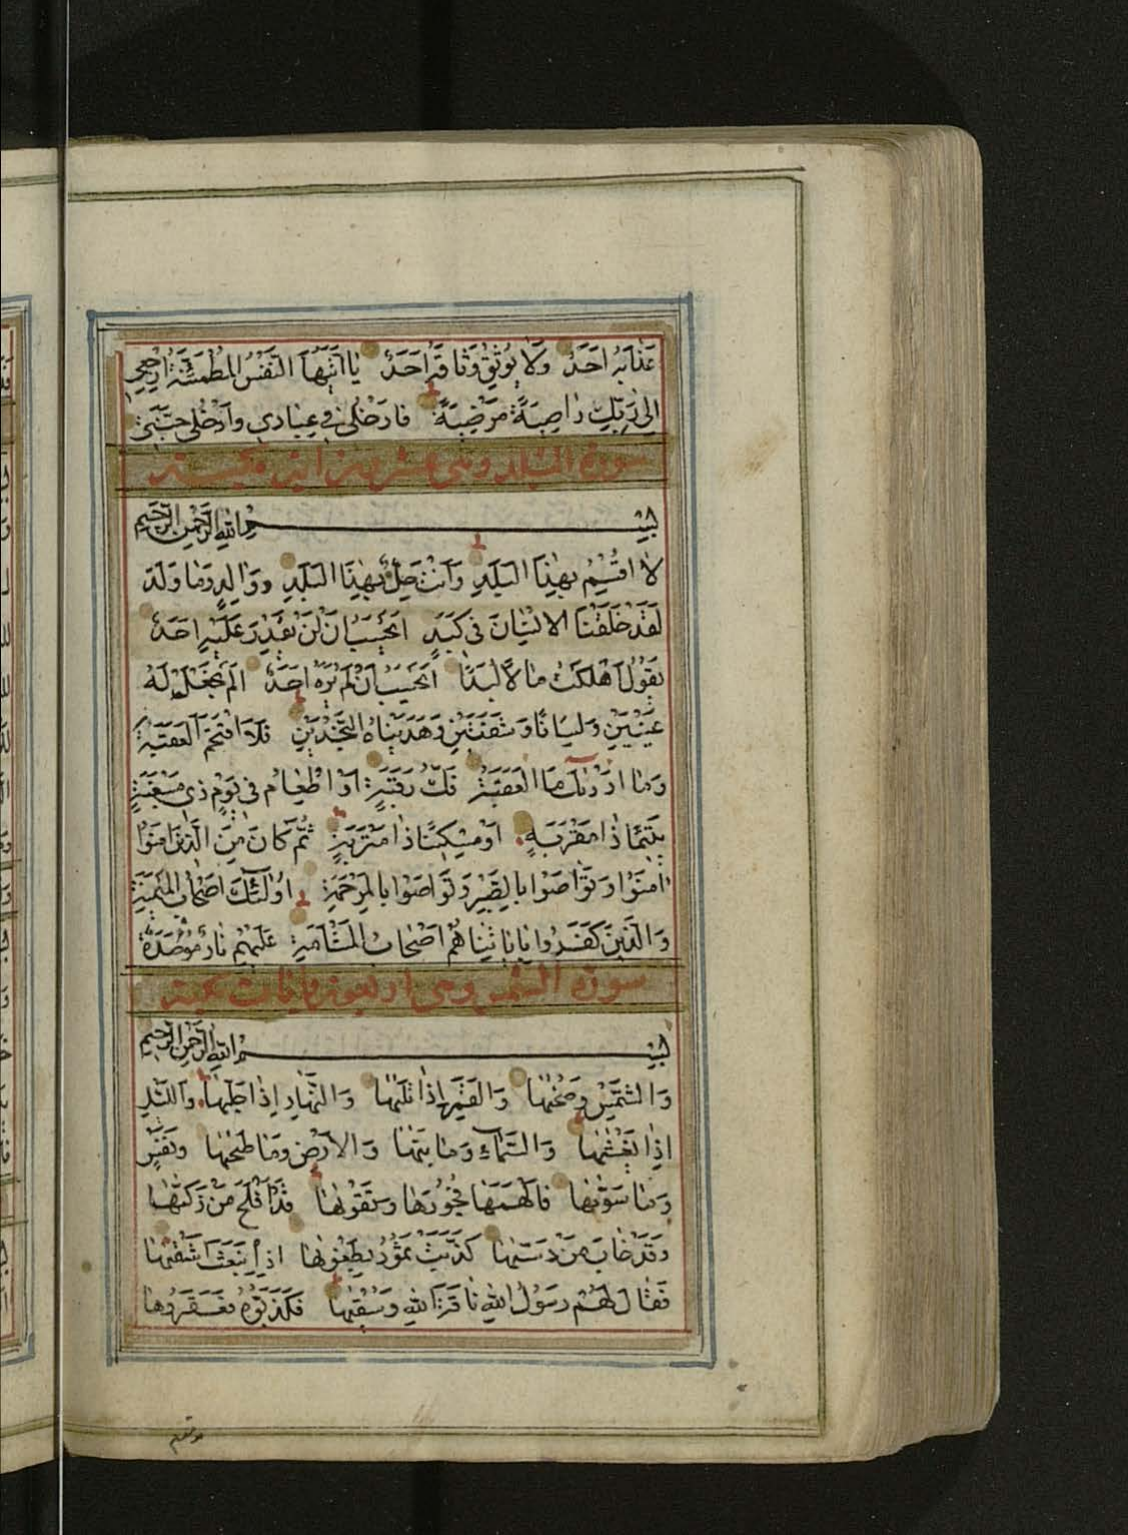 عَذَابَهُ اَحَدٌ وَلَا يُوثِقُ وَثَاقَهُ اَحَدٌ يَا اَيَّتُهَا النَّفْسُ الْمُطْمَئِنَّةُ ارْجِعِي
اِلَى رَبِّكِ رَاضِيَةً مَرْضِيَّةً فَادْخُلِي فِي عِبَادِي وَادْخُلِي جَنَّتِي
سورة البلد وهي عشرون اية مكية
بِسْمِ اللهِ الرَّحْمٰنِ الرَّحِيمِ
لَا اُقْسِمُ بِهٰذَا الْبَلَدِ وَاَنْتَ حِلٌّ بِهٰذَا الْبَلَدِ وَوَالِدٍ وَمَا وَلَدَ
لَقَدْ خَلَقْنَا الْاِنْسَانَ فِي كَبَدٍ اَيَحْسَبُ اَنْ لَنْ يَقْدِرَ عَلَيْهِ اَحَدٌ
يَقُولُ اَهْلَكْتُ مَالًا لُبَدًا اَيَحْسَبُ اَنْ لَمْ يَرَهُ اَحَدٌ اَلَمْ نَجْعَلْ لَهُ
عَيْنَيْنِ وَلِسَانًا وَشَفَتَيْنِ وَهَدَيْنَاهُ النَّجْدَيْنِ فَلَا اقْتَحَمَ الْعَقَبَةَ
وَمَا اَدْرٰىكَ مَا الْعَقَبَةُ فَكُّ رَقَبَةٍ اَوْ اِطْعَامٌ فِي يَوْمٍ ذِي مَسْغَبَةٍ
يَتِيمًا ذَا مَقْرَبَةٍ اَوْ مِسْكِينًا ذَا مَتْرَبَةٍ ثُمَّ كَانَ مِنَ الَّذِينَ اٰمَنُوا
اٰمَنُوا وَتَوَاصَوْا بِالصَّبْرِ وَتَوَاصَوْا بِالْمَرْحَمَةِ اُولٰئِكَ اَصْحَابُ الْمَيْمَنَةِ
وَالَّذِينَ كَفَرُوا بِاٰيَاتِنَا هُمْ اَصْحَابُ الْمَشْاَمَةِ عَلَيْهِمْ نَارٌ مُؤْصَدَةٌ
سورة الشمس وهي اربعون ايات مكية
بِسْمِ اللهِ الرَّحْمٰنِ الرَّحِيمِ
وَالشَّمْسِ وَضُحٰيهَا وَالْقَمَرِ اِذَا تَلٰيهَا وَالنَّهَارِ اِذَا جَلّٰيهَا وَالَّيْلِ
اِذَا يَغْشٰيهَا وَالسَّمَاءِ وَمَا بَنٰيهَا وَالْاَرْضِ وَمَا طَحٰيهَا وَنَفْسٍ
وَمَا سَوّٰيهَا فَاَلْهَمَهَا فُجُورَهَا وَتَقْوٰيهَا قَدْ اَفْلَحَ مَنْ زَكّٰيهَا
وَقَدْ خَابَ مَنْ دَسّٰيهَا كَذَّبَتْ ثَمُودُ بِطَغْوٰيهَا اِذِ انْبَعَثَ اَشْقٰيهَا
فَقَالَ لَهُمْ رَسُولُ اللهِ نَاقَةَ اللهِ وَسُقْيٰهَا فَكَذَّبُوهُ فَعَقَرُوهَا